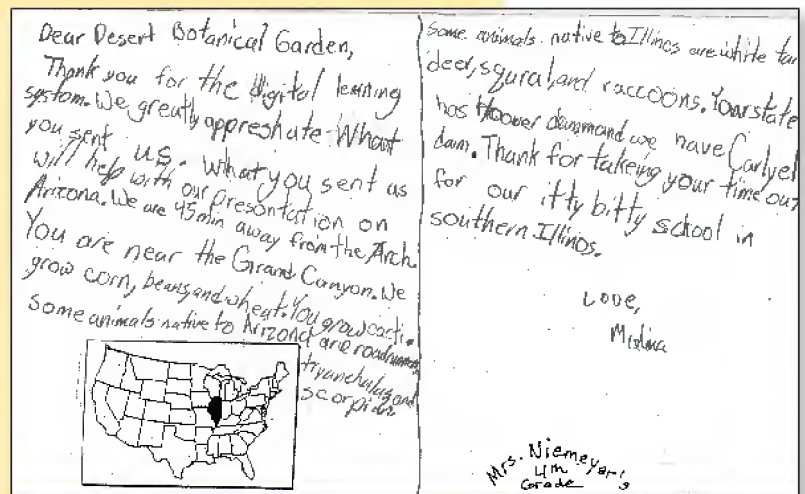 Dear Desert Botanical Garden,
Thank you for the digital learning
system. We greatly appreshate What
you sent us. What you sent as
will help with our presontation on
Arizona. We are 45min away from the Arch.
You are near the Grand Canyon. We
grow corn, beans, and wheat. You grow cacti.
Some animals native to Arizona are roadrunners
tryanchulas and
scorpion
some animals native to Illinos are white tai
deer, squral, and raccoons. Your state
has Hoover dam and we have Carlyel
dam. Thank for takeing your time out
for our itty bitty school in
southern Illinos.
Love,
Mrs. Niemeyer's
4th
Grade